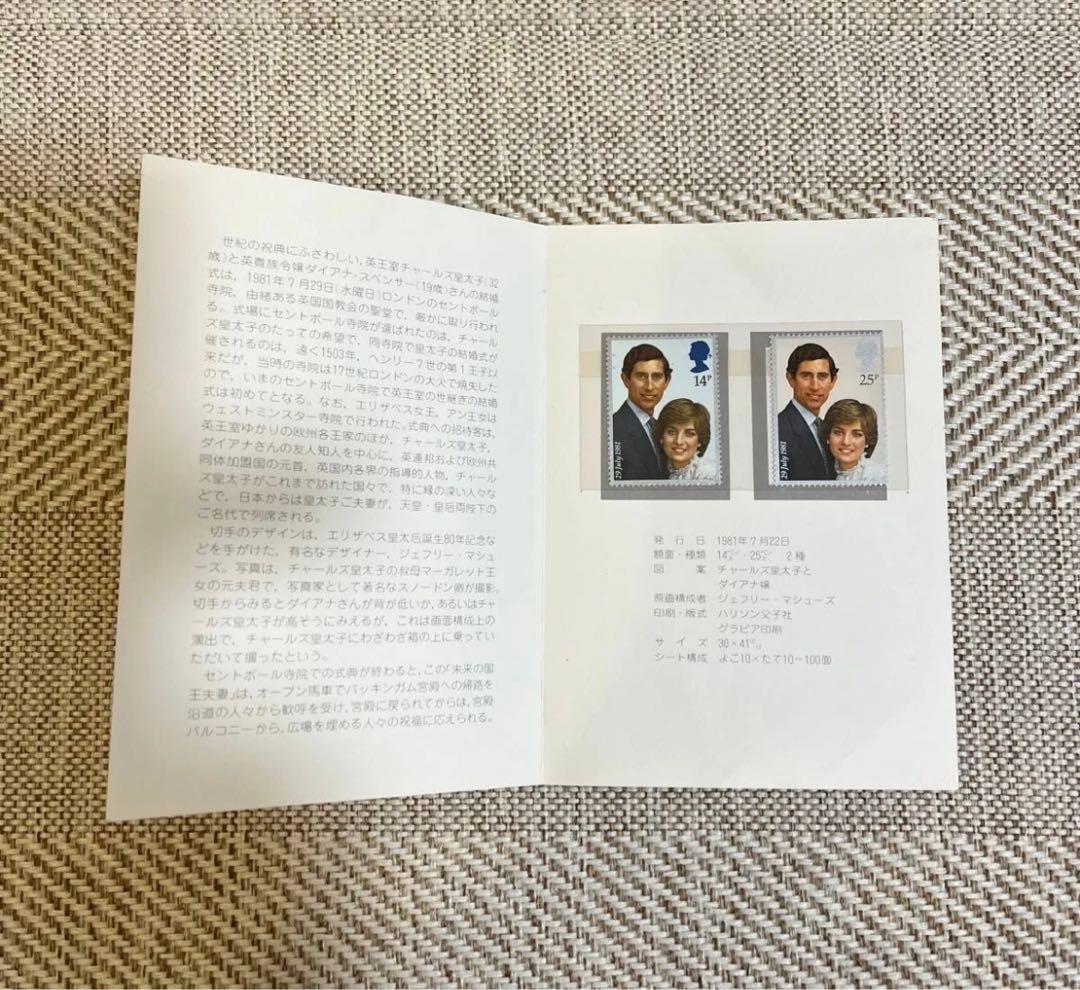 世紀の祝典にふさわしい,英王室チャールズ皇太子(32
歳)と英貴族令嬢ダイアナ・スペンサー(19歳)さんの結婚
式は,1981年7月29日(水曜日)ロンドンのセントポール
寺院,由緒ある英国国教会の聖堂で,厳かに取り行われ
る。式場にセントポール寺院が選ばれたのは,チャール
ズ皇太子のたっての希望で,同寺院で皇太子の結婚式が
催されるのは,遠く1503年,ヘンリー7世の第1王子以
来だが,当時の寺院は17世紀ロンドンの大火で焼失した
ので,いまのセントポール寺院で英王室の世継ぎの結婚
式は初めてとなる。なお,エリザベス女王,アン王女は
ウェストミンスター寺院で行われた。式典への招待客は,
英王室ゆかりの欧州各王家のほか,チャールズ皇太子,
ダイアナさんの友人知人を中心に,英連邦および欧州共
同体加盟国の元首,英国内各界の指導的人物,チャール
ズ皇太子がこれまで訪れた国々で,特に縁の深い人々な
どで,日本からは皇太子ご夫妻が,天皇・皇后両陛下の
ご名代で列席される。
切手のデザインは,エリザベス皇太后誕生80年記念な
どを手がけた,有名なデザイナー,ジェフリー・マシュ
ーズ。写真は,チャールズ皇太子の叔母マーガレット王
女の元夫君で,写真家として著名なスノードン卿が撮影。
切手からみるとダイアナさんが背が低いか,あるいはチャ
ールズ皇太子が高そうにみえるが,これは画面構成上の
演出で,チャールズ皇太子にわざわざ箱の上に乗ってい
ただいて撮ったという。
セントポール寺院での式典が終わると,この「未来の国
王夫妻」は,オープン馬車でバッキンガム宮殿への帰路を
沿道の人々から歓呼を受け,宮殿に戻られてからは,宮殿
バルコニーから,広場を埋める人々の祝福に応えられる。
14P
29 July 1981
25P
29 July 1981
発行日 1981年7月22日
額面・種類 14ペンス・25ペンス 2種
図案 チャールズ皇太子と
ダイアナ嬢
原画構成者 ジェフリー・マシューズ
印刷・版式 ハリソン父子社
グラビア印刷
サイズ 30×41ミリ
シート構成 よこ10×たて10=100面